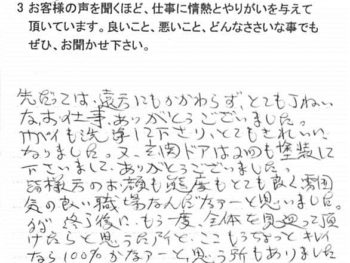 3 お客様の声を聞くほど、仕事に情熱とやりがいを与えて
頂いています。良いこと、悪いこと、どんなささいな事でも
ぜひ、お聞かせ下さい。
先だっては、遠方にもかかわらず、とてもていねい
なお仕事、ありがとうございました。
カベも洗浄して下さり、とてもきれいに
なりました。又、玄関ドアは2回も塗装して
下さいまして、ありがとうございました。
皆様方のお顔も態度もとても良く雰囲
気の良い職場なんだなァーと思いました。
が、終了後に、もう一度、全体を見廻って頂
けたらと思うた所と、ここもうちょっとキレイ
なら100%かなァーと思う所もありました